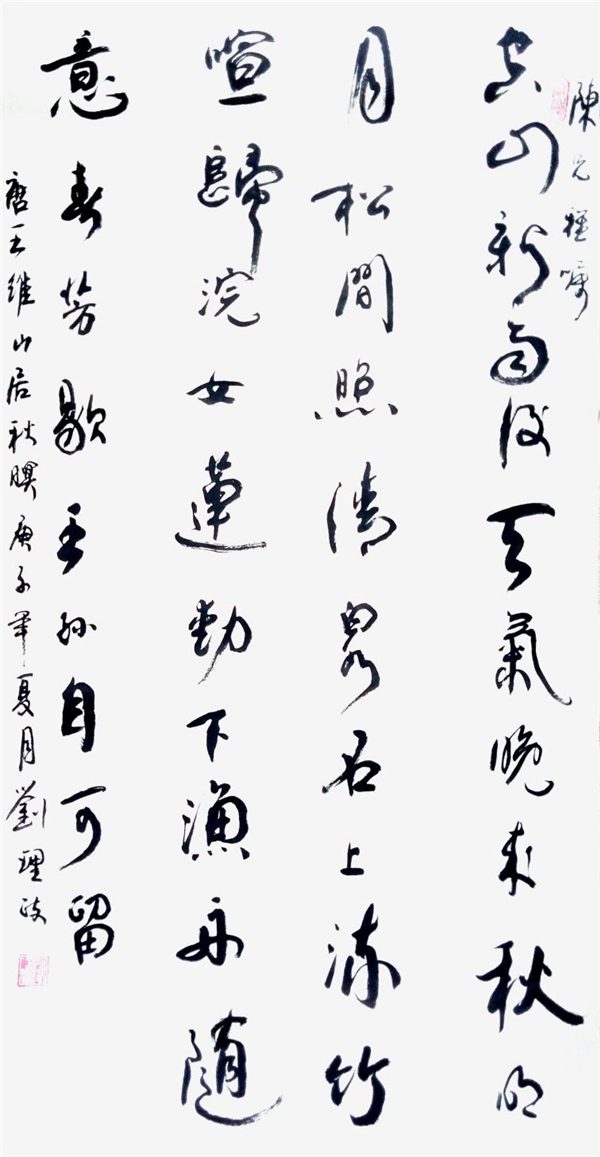 陳兄雅嘱
空山新雨後天氣晚来秋明
月松間照清泉石上流竹
喧歸浣女蓮動下漁舟随
意春芳歇王孫自可留
唐王維山居秋暝庚子年夏月劉理